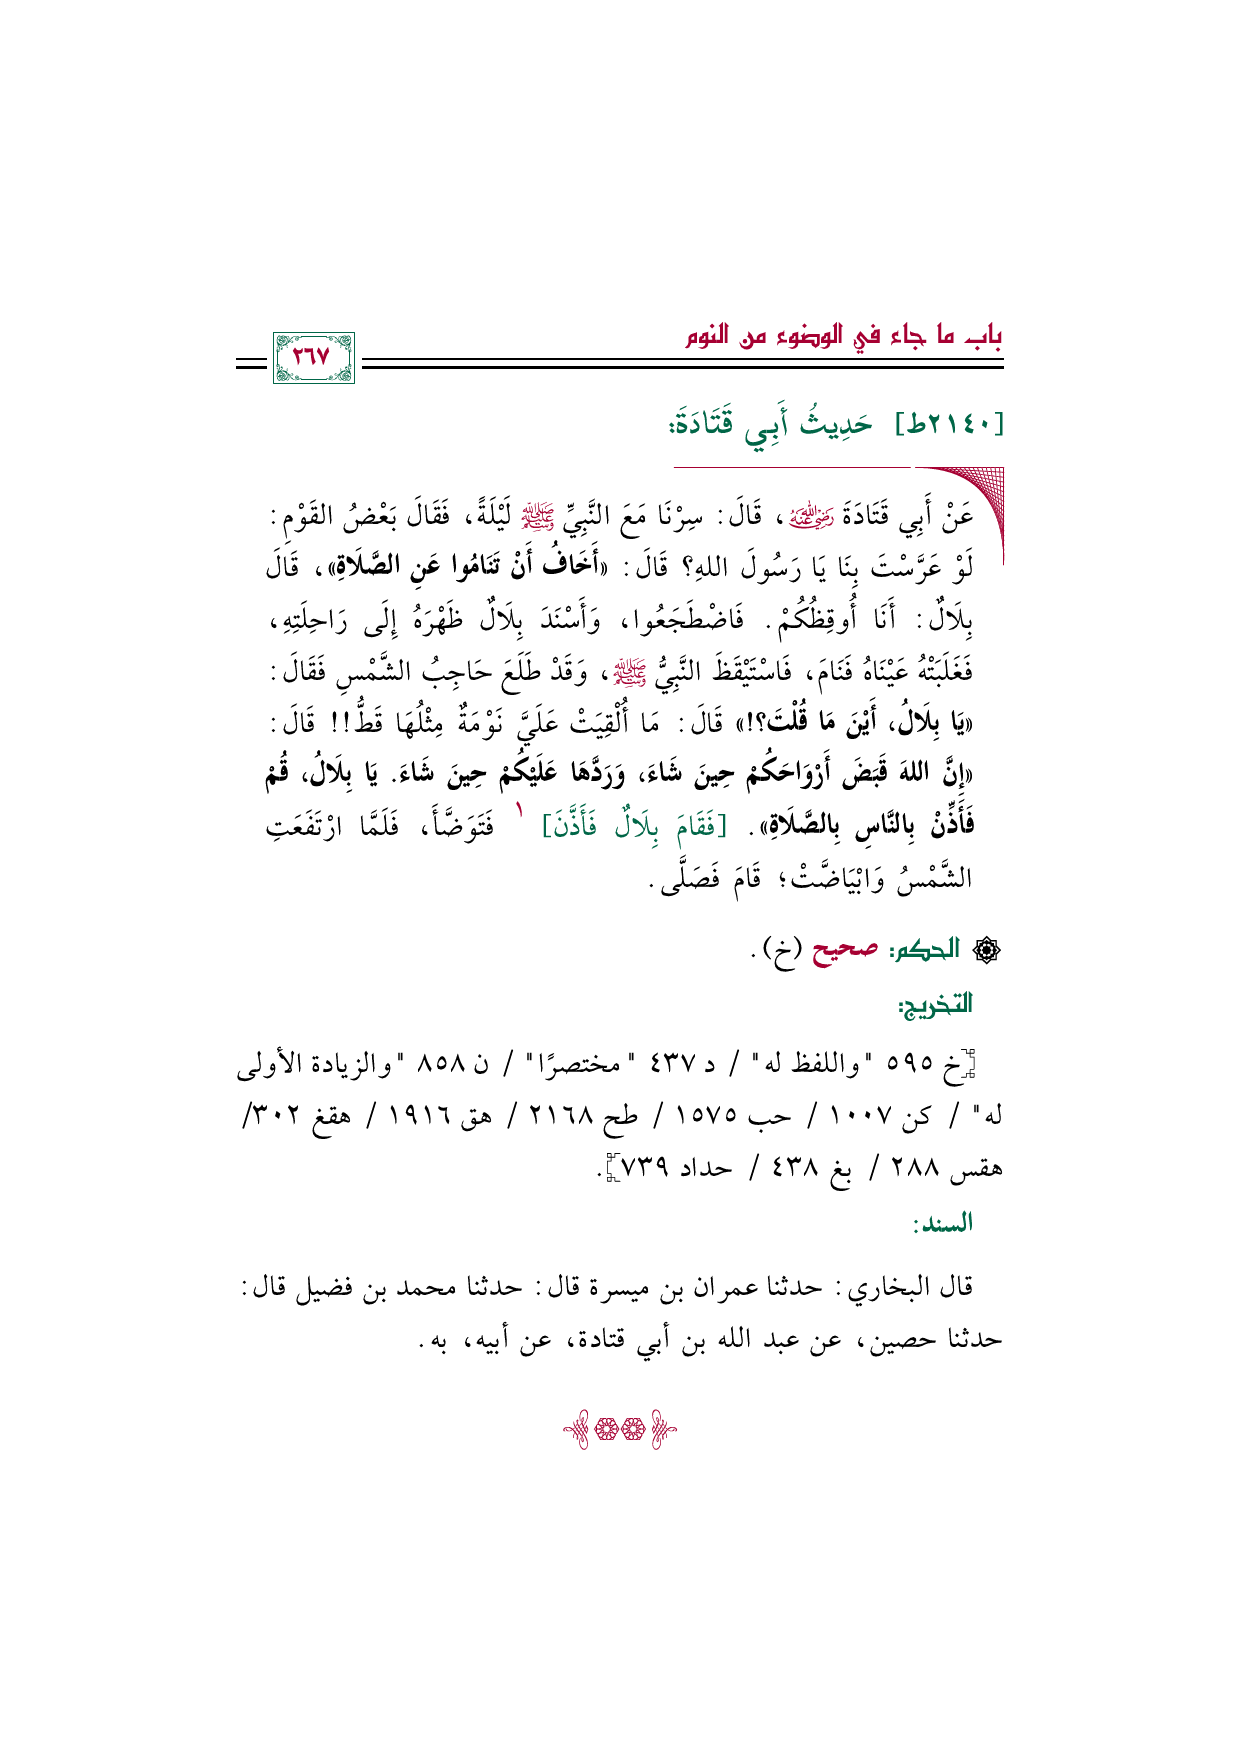 باب ما جاء في الوضوء من النوم
٢٦٧
[٢١٤٠ط] حَدِيثُ أَبِي قَتَادَةَ:
عَنْ أَبِي قَتَادَةَ رضي الله عنه، قَالَ: سِرْنَا مَعَ النَّبِيِّ ﷺ لَيْلَةً، فَقَالَ بَعْضُ القَوْمِ:
لَوْ عَرَّسْتَ بِنَا يَا رَسُولَ اللهِ؟ قَالَ: «أَخَافُ أَنْ تَنَامُوا عَنِ الصَّلَاةِ»، قَالَ
بِلَالٌ: أَنَا أُوقِظُكُمْ. فَاضْطَجَعُوا، وَأَسْنَدَ بِلَالٌ ظَهْرَهُ إِلَى رَاحِلَتِهِ،
فَغَلَبَتْهُ عَيْنَاهُ فَنَامَ، فَاسْتَيْقَظَ النَّبِيُّ ﷺ، وَقَدْ طَلَعَ حَاجِبُ الشَّمْسِ فَقَالَ:
«يَا بِلَالُ، أَيْنَ مَا قُلْتَ؟!» قَالَ: مَا أُلْقِيَتْ عَلَيَّ نَوْمَةٌ مِثْلُهَا قَطُّ!! قَالَ:
«إِنَّ اللهَ قَبَضَ أَرْوَاحَكُمْ حِينَ شَاءَ، وَرَدَّهَا عَلَيْكُمْ حِينَ شَاءَ. يَا بِلَالُ، قُمْ
فَأَذِّنْ بِالنَّاسِ بِالصَّلَاةِ». [فَقَامَ بِلَالٌ فَأَذَّنَ] ١ فَتَوَضَّأَ، فَلَمَّا ارْتَفَعَتِ
الشَّمْسُ وَابْيَاضَّتْ؛ قَامَ فَصَلَّى.
الحكم: صحيح (خ).
التخريج:
[خ ٥٩٥ "واللفظ له" / د ٤٣٧ "مختصرًا" / ن ٨٥٨ "والزيادة الأولى
له" / كن ١٠٠٧ / حب ١٥٧٥ / طح ٢١٦٨ / هق ١٩١٦ / هقغ ٣٠٢/
هقس ٢٨٨ / بغ ٤٣٨ / حداد ٧٣٩].
السند:
قال البخاري: حدثنا عمران بن ميسرة قال: حدثنا محمد بن فضيل قال:
حدثنا حصين، عن عبد الله بن أبي قتادة، عن أبيه، به.